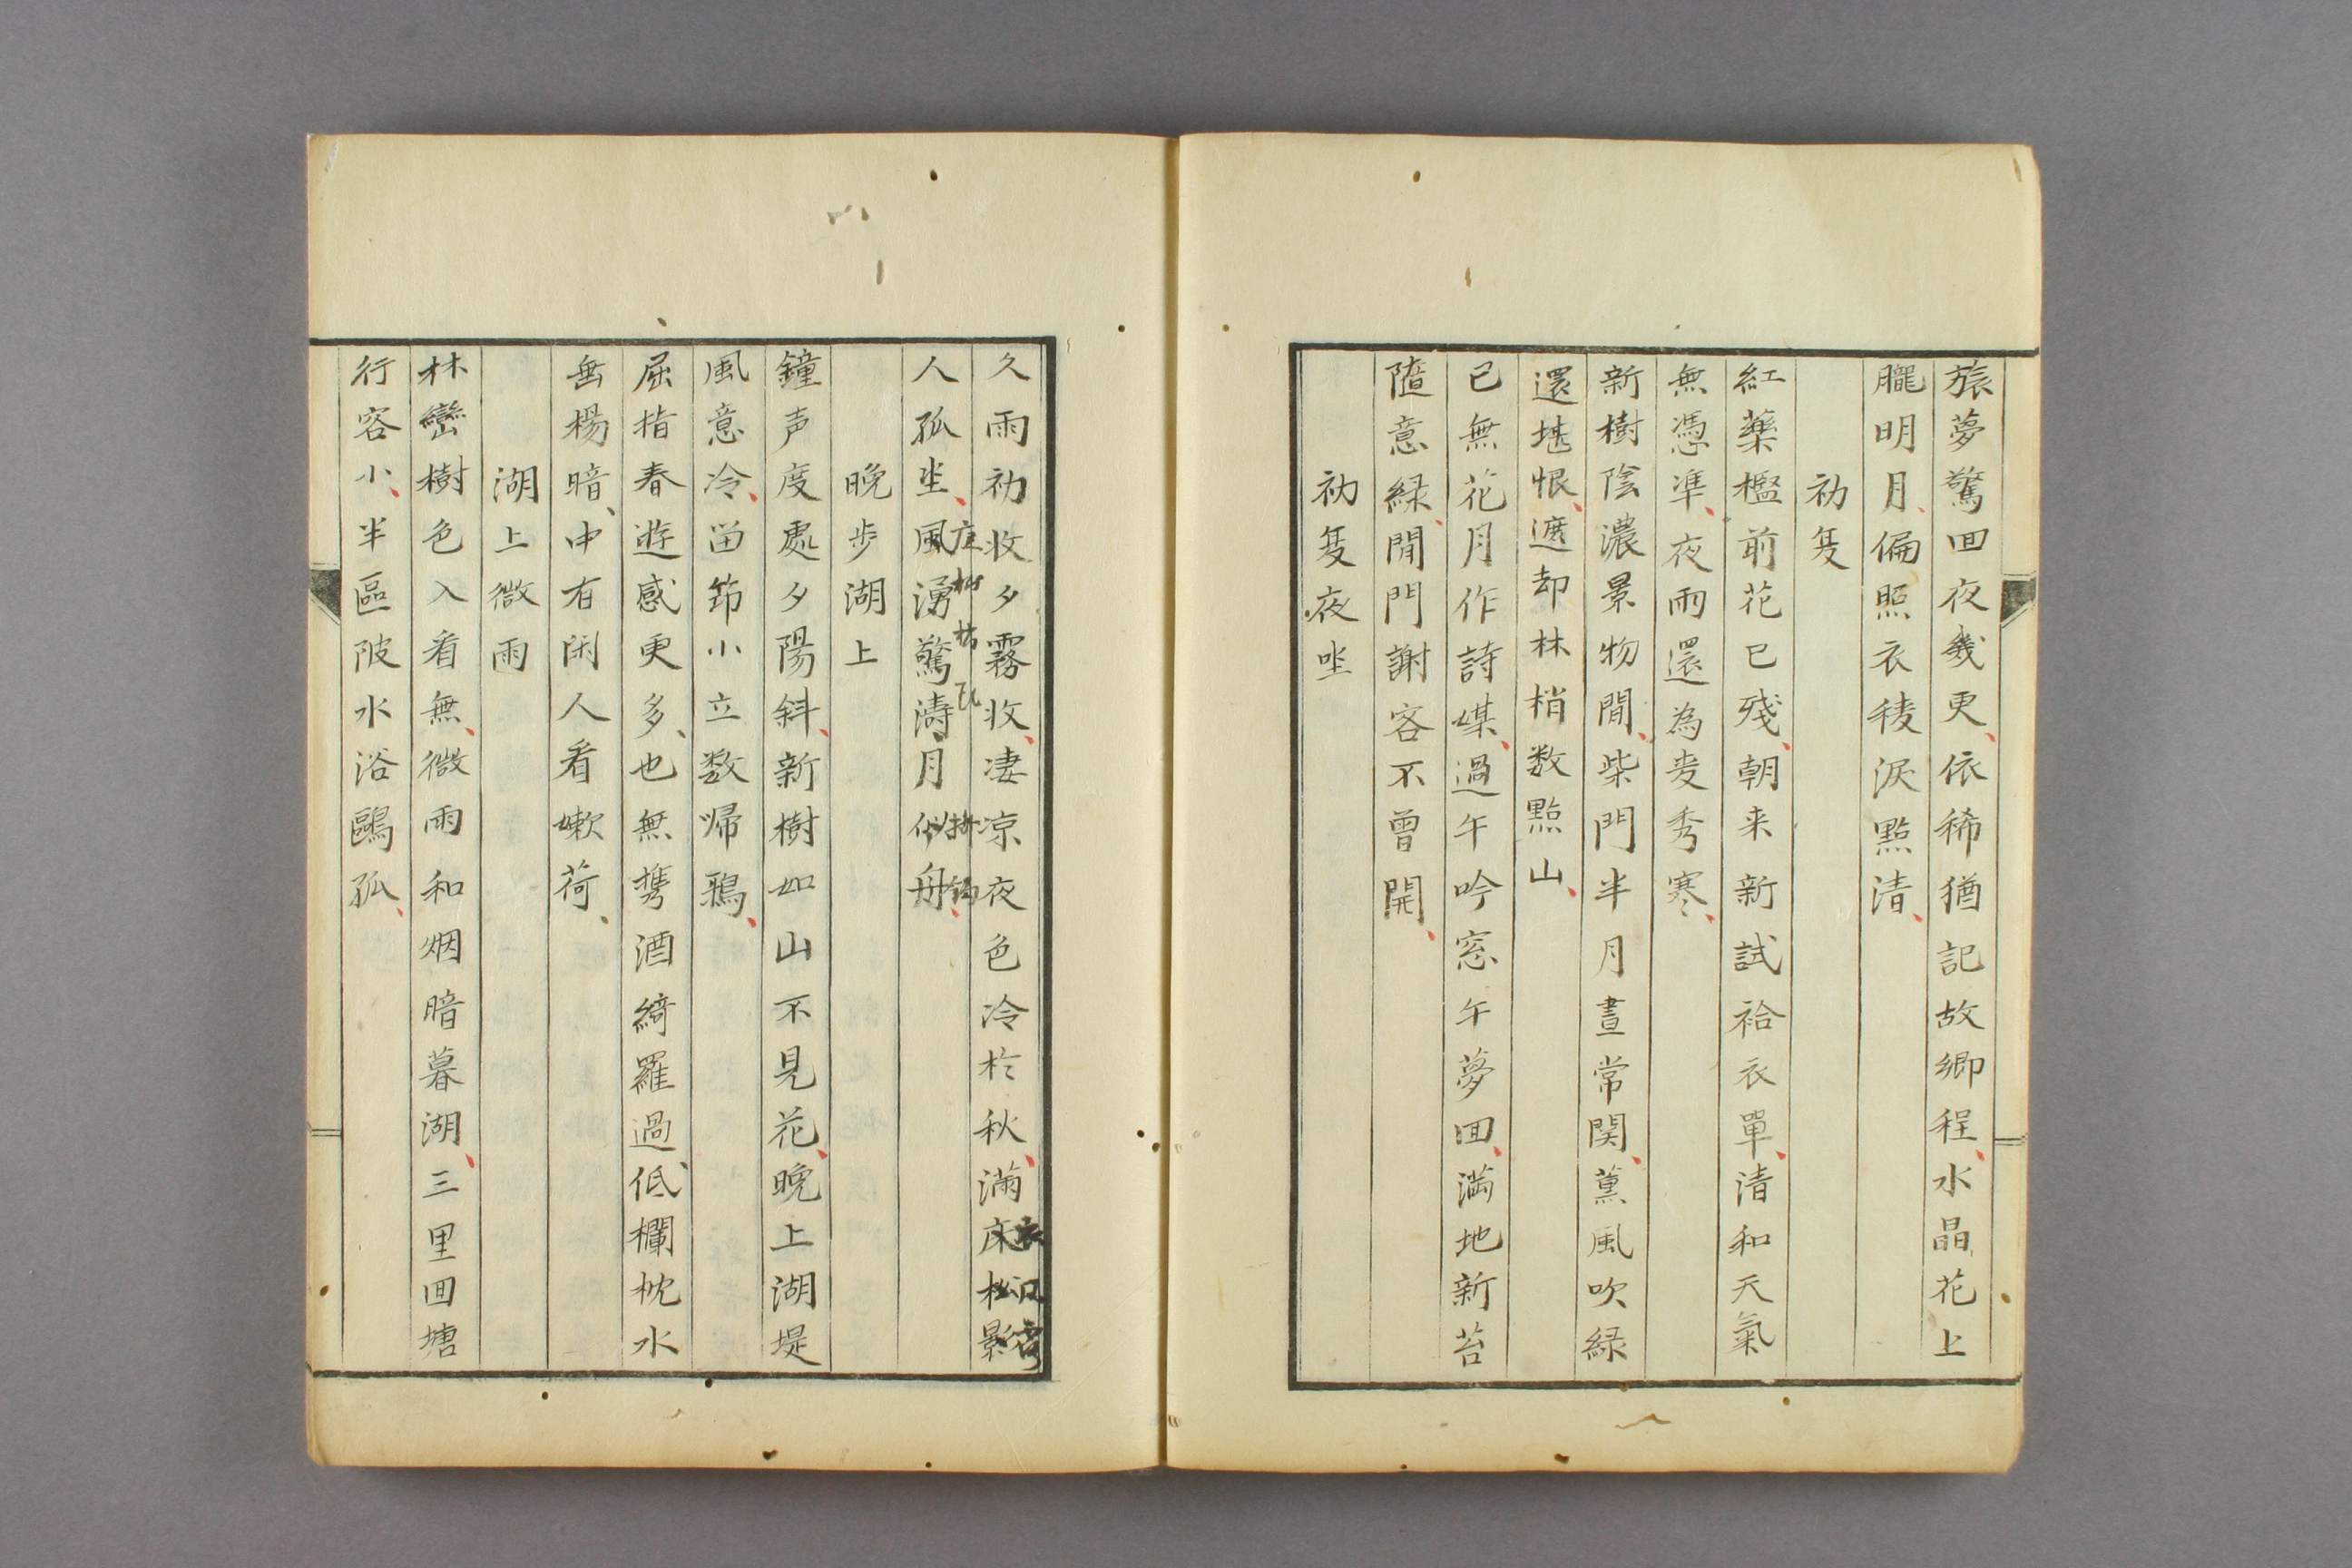 旅夢驚囬夜幾更依稀猶記故郷程水晶花上
朧明月偏照衣稜涙點清
初夏
紅藥檻前花已殘朝来新試袷衣單清和天氣
無憑準夜雨還為麦秀寒
新樹陰濃景物閒柴門半月晝常関薫風吹緑
還堪恨遮却林梢数點山
已無花月作詩媒過午吟窓午夢囬満地新苔
隨意緑閒門謝客不曽開
初夏夜坐
久雨初收夕霧收凄凉夜色冷於秋滿床松影
人孤坐風湧驚濤月似舟
晩步湖上
鐘声度處夕陽斜新樹如山不見花晩上湖堤
風意冷畄筇小立数帰鴉
屈指春遊感更多也無携酒綺羅過低欄枕水
垂楊暗中有閑人看嫩荷
湖上微雨
林巒樹色入看無微雨和烟暗暮湖三里囬塘
行容小半區陂水浴鷗孤